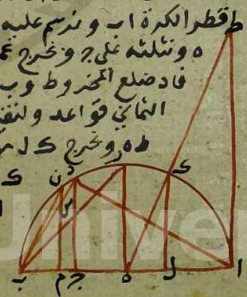 قطر الكرة اب ونرسم عليه
ه ونثلثه على ج ونخرج عمو
فاد ضلع المخروط وب
الثماني قواعد ولنقم
ط ه ونخرج ك ل
ط
د
ن
ر
ك
ك
س
ب
م
ج
ه
ل
ا
Univer